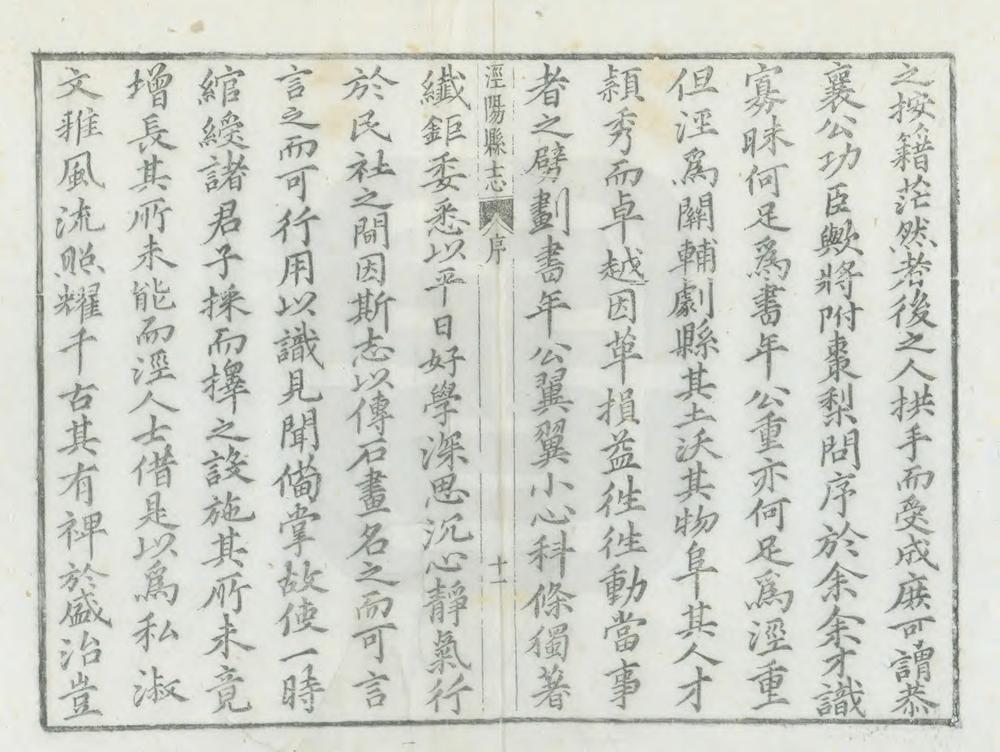 之按籍茫然若後之人拱手而受成庶可謂恭
襄公功臣歟將附棗梨問序於余余才識
寡昧何足爲書年公重亦何足爲涇重
但涇爲關輔劇縣其土沃其物阜其人才
穎秀而卓越因革損益徃徃動當事
者之劈劃書年公翼翼小心科條獨著
涇陽縣志 序 十一
纎鉅委悉以平日好學深思沉心靜氣行
於民社之間因斯志以傳石畫名之而可言
言之而可行用以識見聞備掌故使一時
綰綬諸君子採而擇之設施其所未竟
增長其所未能而涇人士借是以爲私淑
文雅風流照耀千古其有裨於盛治豈